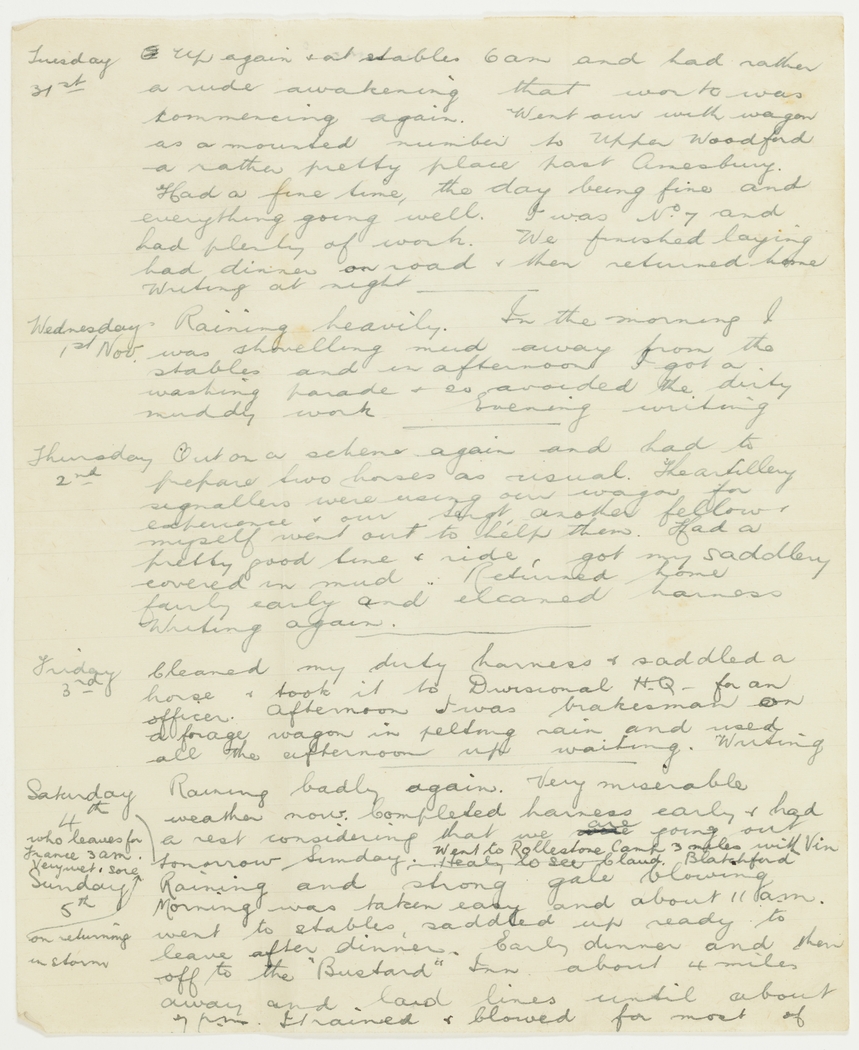 Tuesday Up again & at stables 6am and had rather
31st a rude awakening that work was
commencing again. Went out with wagon
as a mounted number to Upper Woodford
a rather pretty place past Amesbury.
Had a fine time, the day being fine and
everything going well. I was No. 7 and
had plenty of work. We finished laying
had dinner on road & then returned home
Writing at night
Wednesday Raining heavily. In the morning I
1st Nov. was shovelling mud away from the
stables and in afternoon I got a
washing parade & so avoided the dirty
muddy work Evening writing
Thursday Out on a scheme again and had to
2nd prepare two horses as usual. The artillery
signallers were using our wagon for
experience & our Sergt another fellow &
myself went out to help them. Had a
pretty good time & ride, got my saddlery
covered in mud. Returned home
fairly early and elcaned harness
Writing again.
Friday Cleaned my dirty harness & saddled a
3rd horse & took it to Divisional H.Q - for an
officer. Afternoon I was brakesman on
a forage wagon in pelting rain and used
all the afternoon up waiting. Writing
Saturday Raining badly again. Very miserable
4th weather now. Completed harness early & had
who leaves for a rest considering that we are going out
France 3am. tomorrow Sunday. Went to Rollestone Camp 3 miles with Vin
Very wet & sore Healy to see Claud. Blatchford
Sunday Raining and strong gale blowing
5th Morning was taken easy and about 11 a.m.
went to stables, saddled up ready to
on returning leave after dinner. Early dinner and then
in storm off to the "Bustard" Inn about 4 miles
away and laid lines until about
7 p.m. It rained & blowed for most of